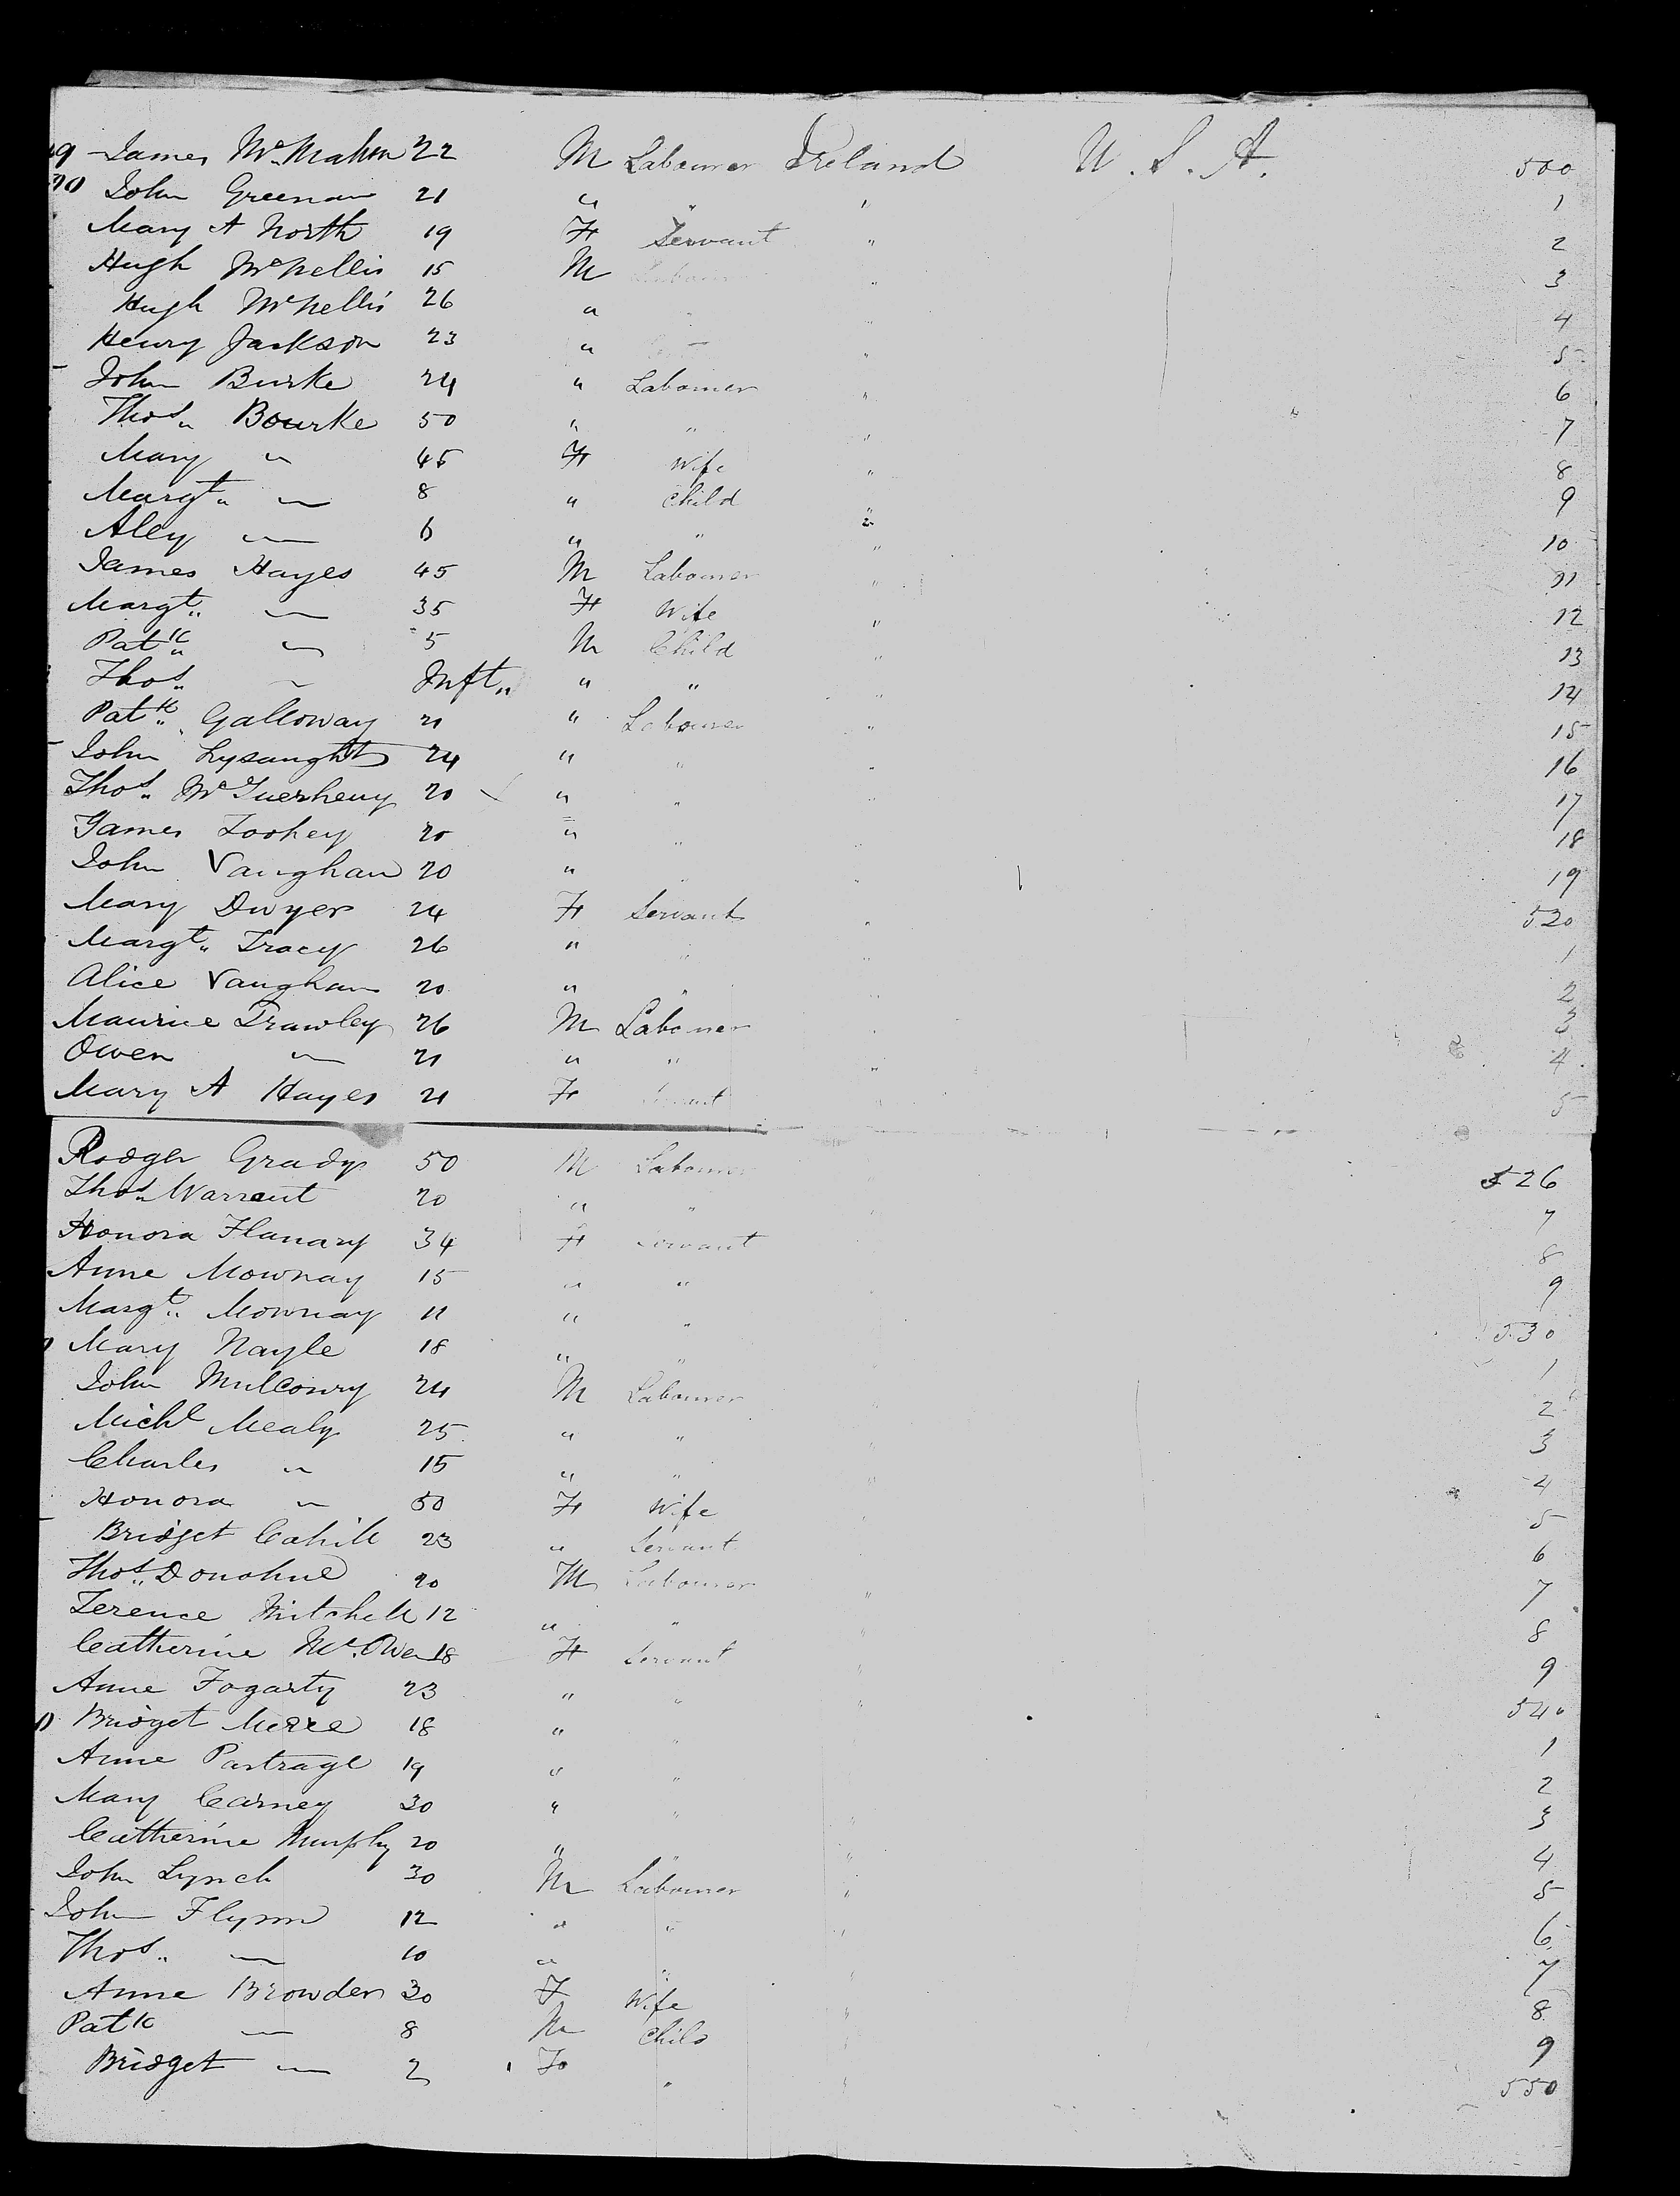 49 James McMahon 22 M Labourer Ireland U. S. A. 500
John Greenan 21 " " " 1
Mary A North 19 F Servant " 2
Hugh McNellis 15 M " 3
Hugh McNellis 26 " 4
Henry Jackson 23 " " 5
John Burke 24 " Labourer " 6
Thos. Bourke 50 " " " 7
Mary " 45 F Wife " 8
Margt. " 8 " Child " 9
Aley " 6 " " " 10
James Hayes 45 M Labourer " 11
Margt. " 35 F Wife " 12
Patk. " 5 M Child " 13
Thos. " Inft. " " " 14
Patk. Galloway 21 " Labourer " 15
John Lysaught 24 " " " 16
Thos. 20 " " " 17
James Toohey 20 " " " 18
John Vaughan 20 " " " 19
Mary Dwyer 24 F Servant " 520
Margt. Tracy 26 " " " 1
Alice Vaughan 20 " " " 2
Maurice 26 M Labourer " 3
Owen " 21 " " " 4
Mary A Hayes 21 F Servant " 5
Rodger Grady 50 M Labourer 526
Thos. Warrent 20 " " 7
Honora Flanary 34 F Servant 8
Anne 15 " " 9
Margt. 11 " " 530
Mary Nayle 18 " " 1
John Mulconry 24 M Labourer 2
Michl Mealy 25 " " 3
Charles " 15 " " 4
Honora " 50 F Wife 5
Bridget Cahill 23 " Servant 6
Thos. Donohue 20 M Labourer " 7
Terence Mitchell 12 " " " 8
Catherine McOwen 18 F Servant " 9
Anne Fogarty 23 " " " 540
Bridget 18 " " 1
Anne Partrage 19 " " 2
Mary Carney 30 " " " 3
Catherine Murphy 20 " " " 4
John Lynch 30 M Labourer " 5
John Flynn 12 " " " 6
Thos. " 10 " " " 7
Anne Browder 30 F Wife " 8
Patk " 8 M Child " 9
Bridget " 2 F " " 550